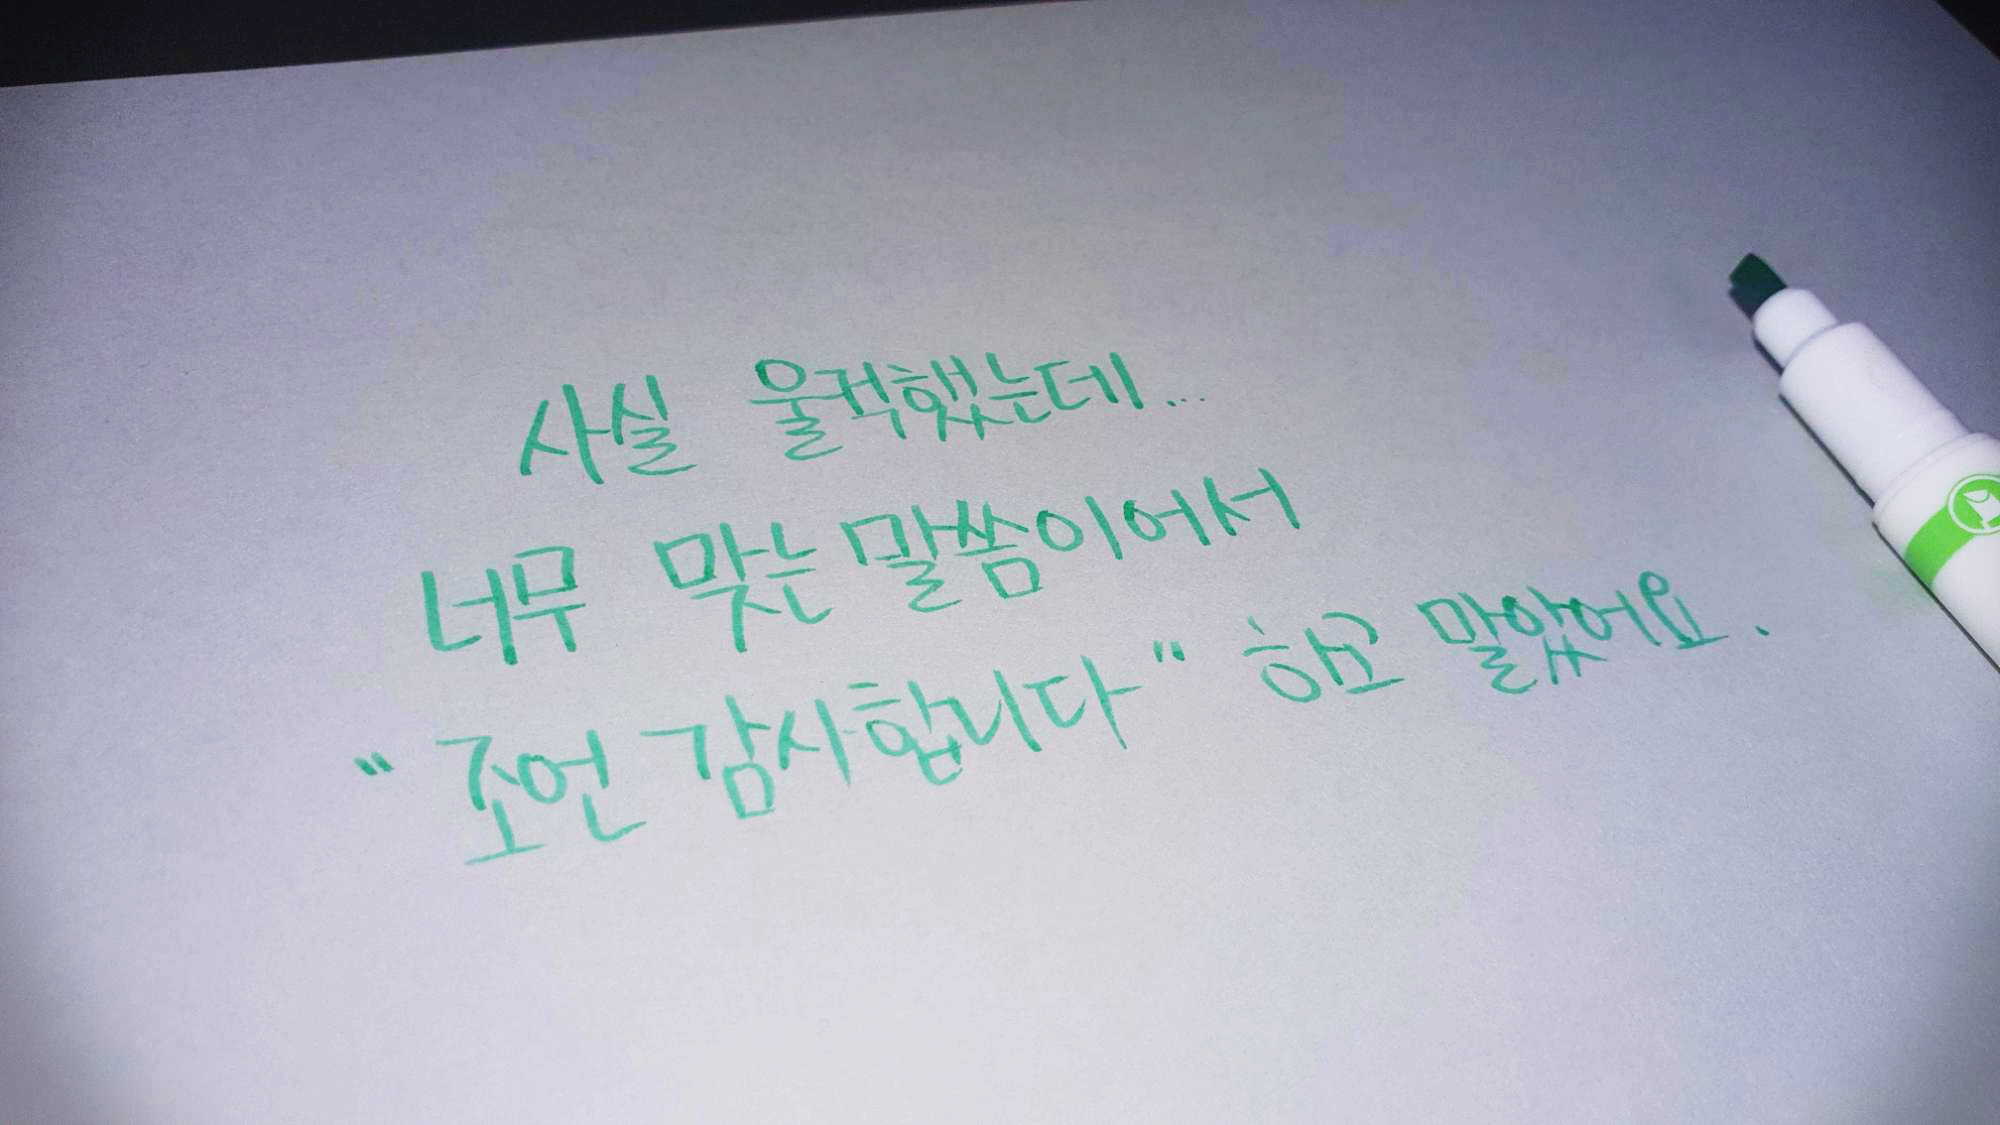 사실 울컥했는데...
너무 맞는 말씀이어서
"조언 감사합니다" 하고 말았어요.